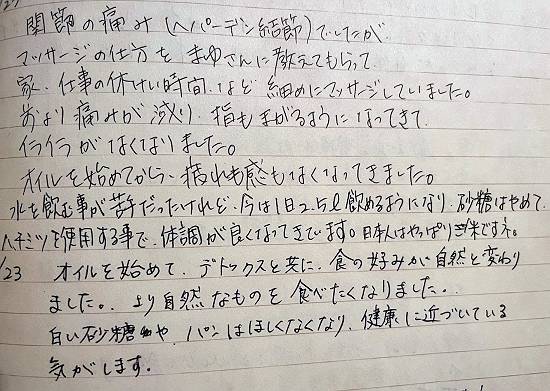 関節の痛み(ヘバーデン結節)でしたが
マッサージの仕方をまゆさんに教えてもらって
家、仕事の休けい時間、など 細めにマッサージしていました。
より痛みが減り、指もまがるようになってきて
イライラがなくなりました。
オイルを始めてから、疲れも感もなくなってきました。
水を飲む事が苦手だったけれど、今は1日2.5ℓ飲めるようになり、砂糖はやめて、
ハチミツを使用する事で、体調が良くなってきています。日本人はやっぱりお米ですネ。
/23 オイルを始めて、デトックスと共に、食の好みが自然と変わり
ました。より自然なものを食べたくなりました。
白い砂糖や、パンはほしくなくなり、健康に近づいている
気がします。